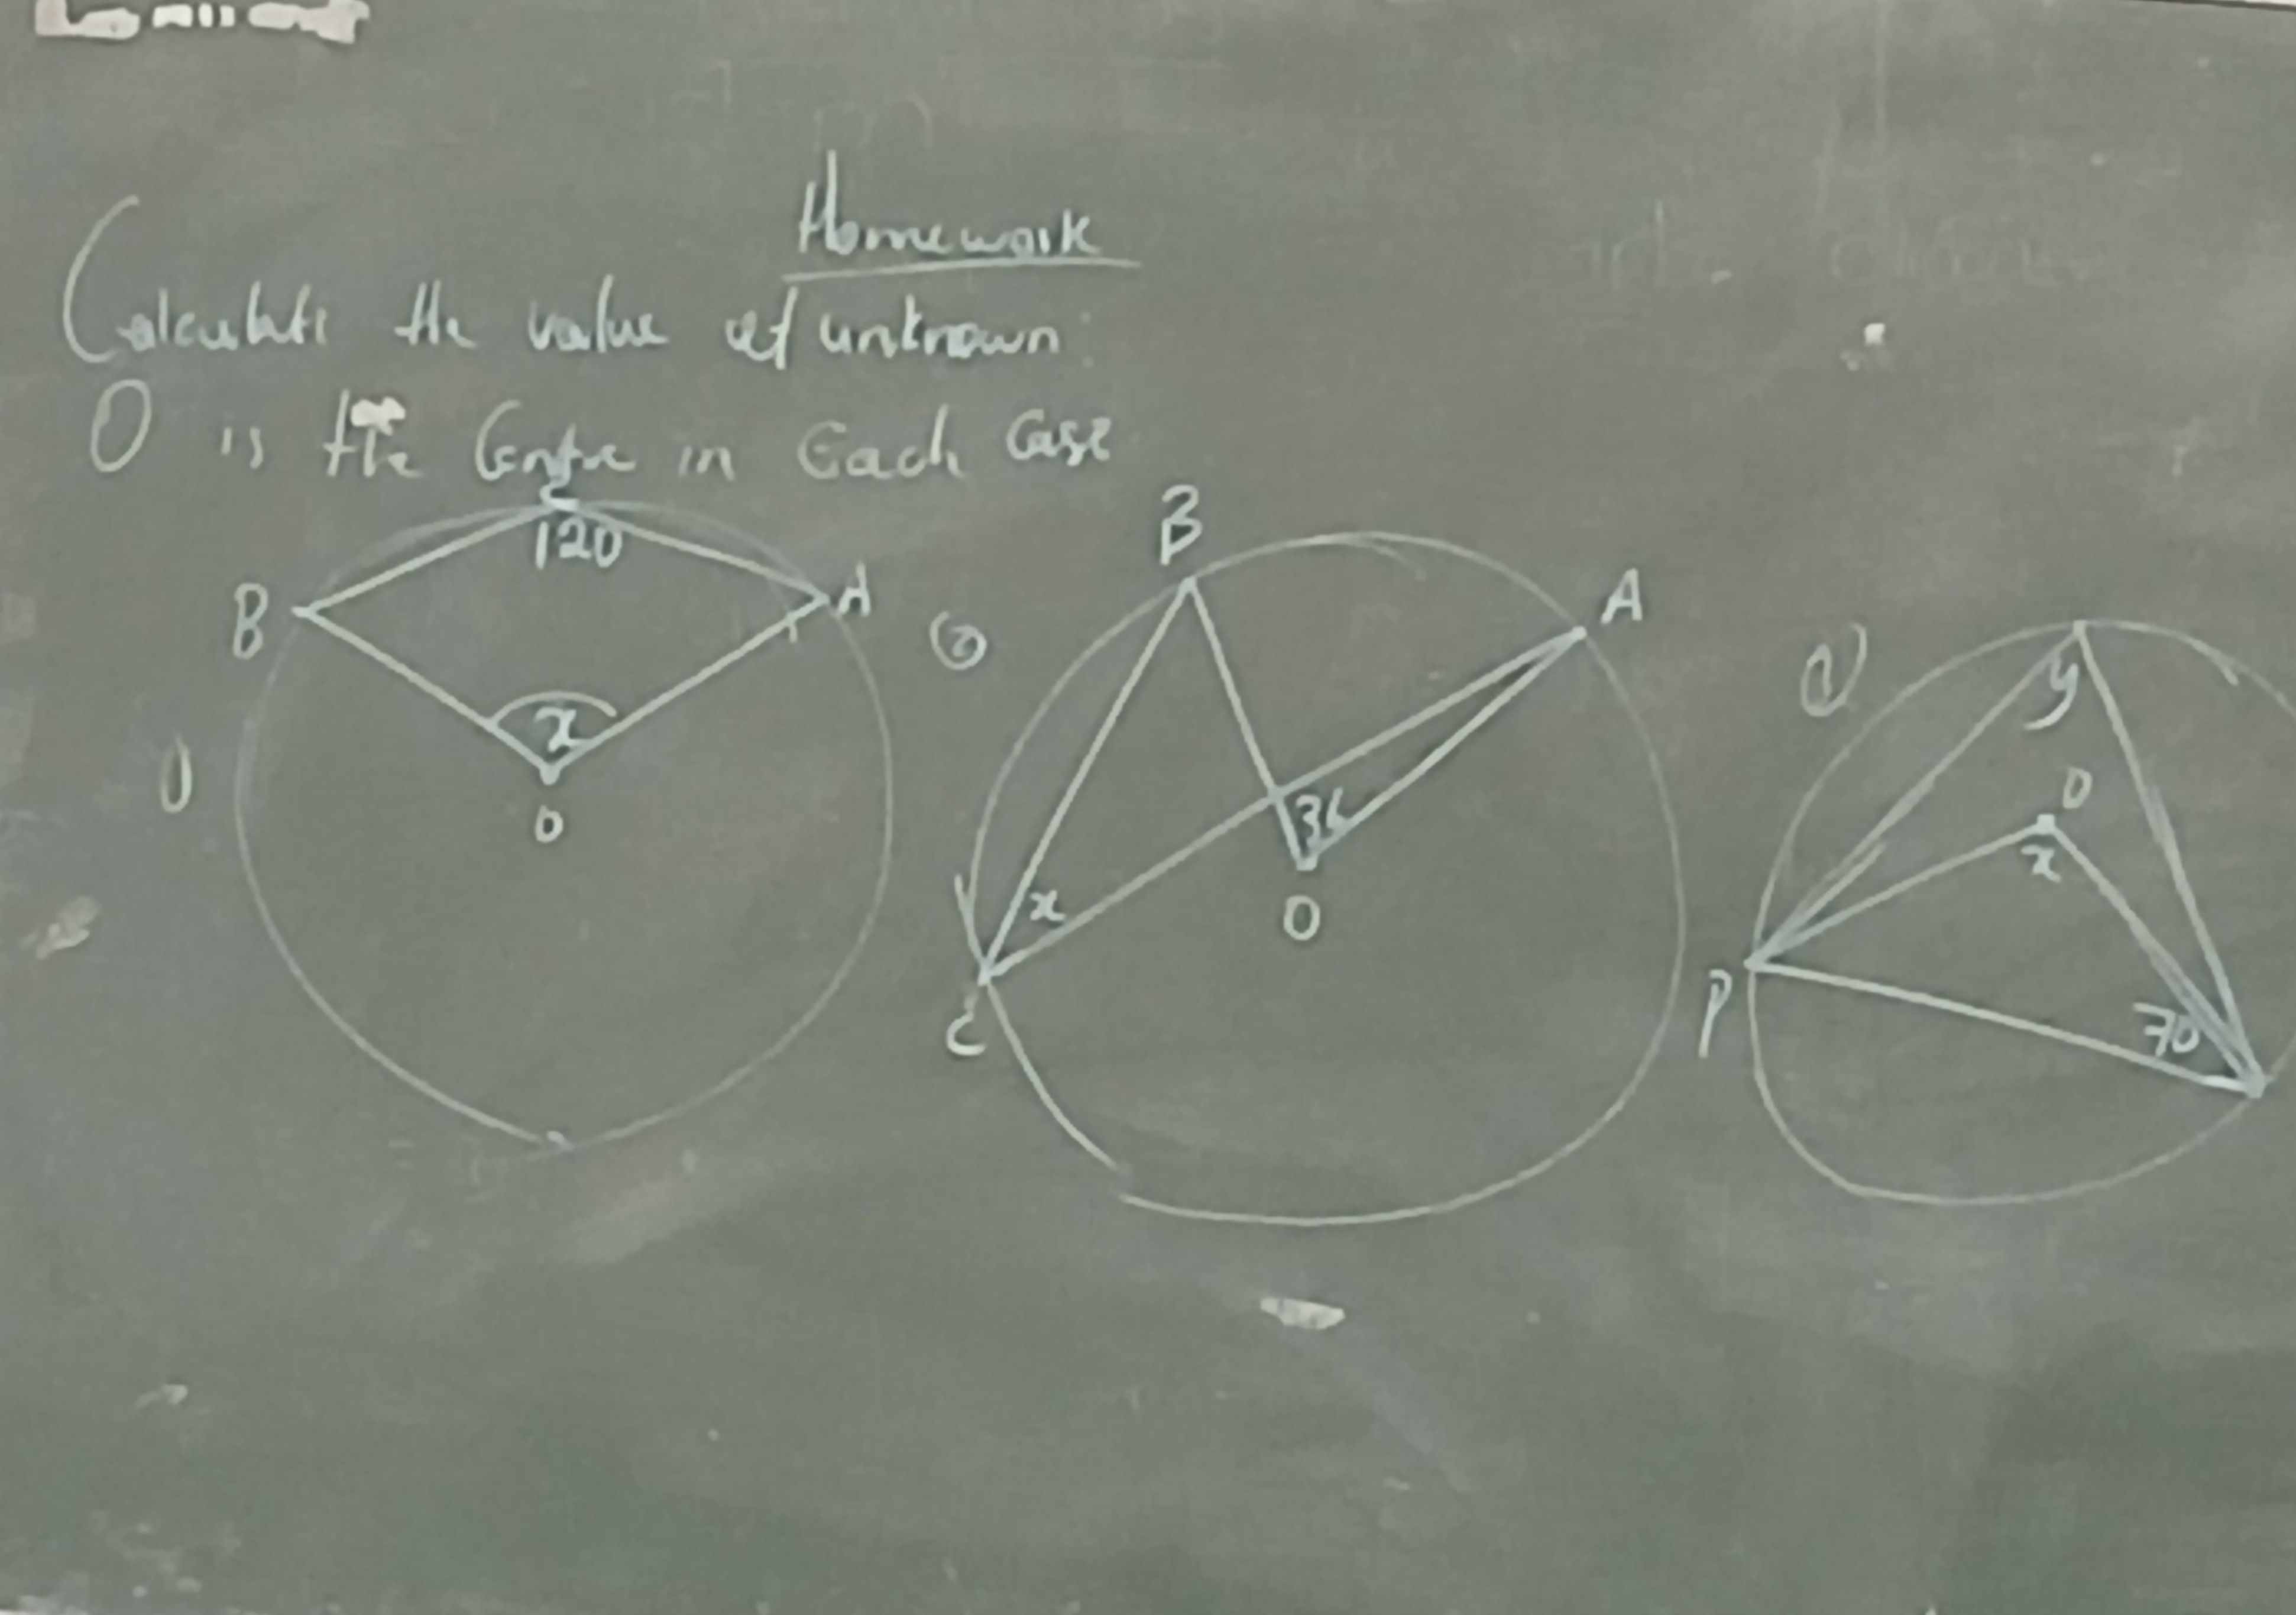 Homework
Calculate the value of unknown:
O is the Centre in Each Case
C
120
B
A
x
O
1)
2)
B
A
36
x
O
C
y
O
x
P
70